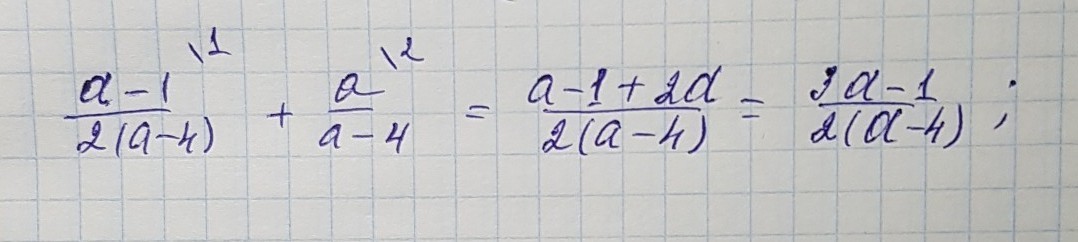 \frac{a-1}{2(a-4)}^{\1} + \frac{a}{a-4}^{\2} = \frac{a-1+2a}{2(a-4)} = \frac{3a-1}{2(a-4)} ;